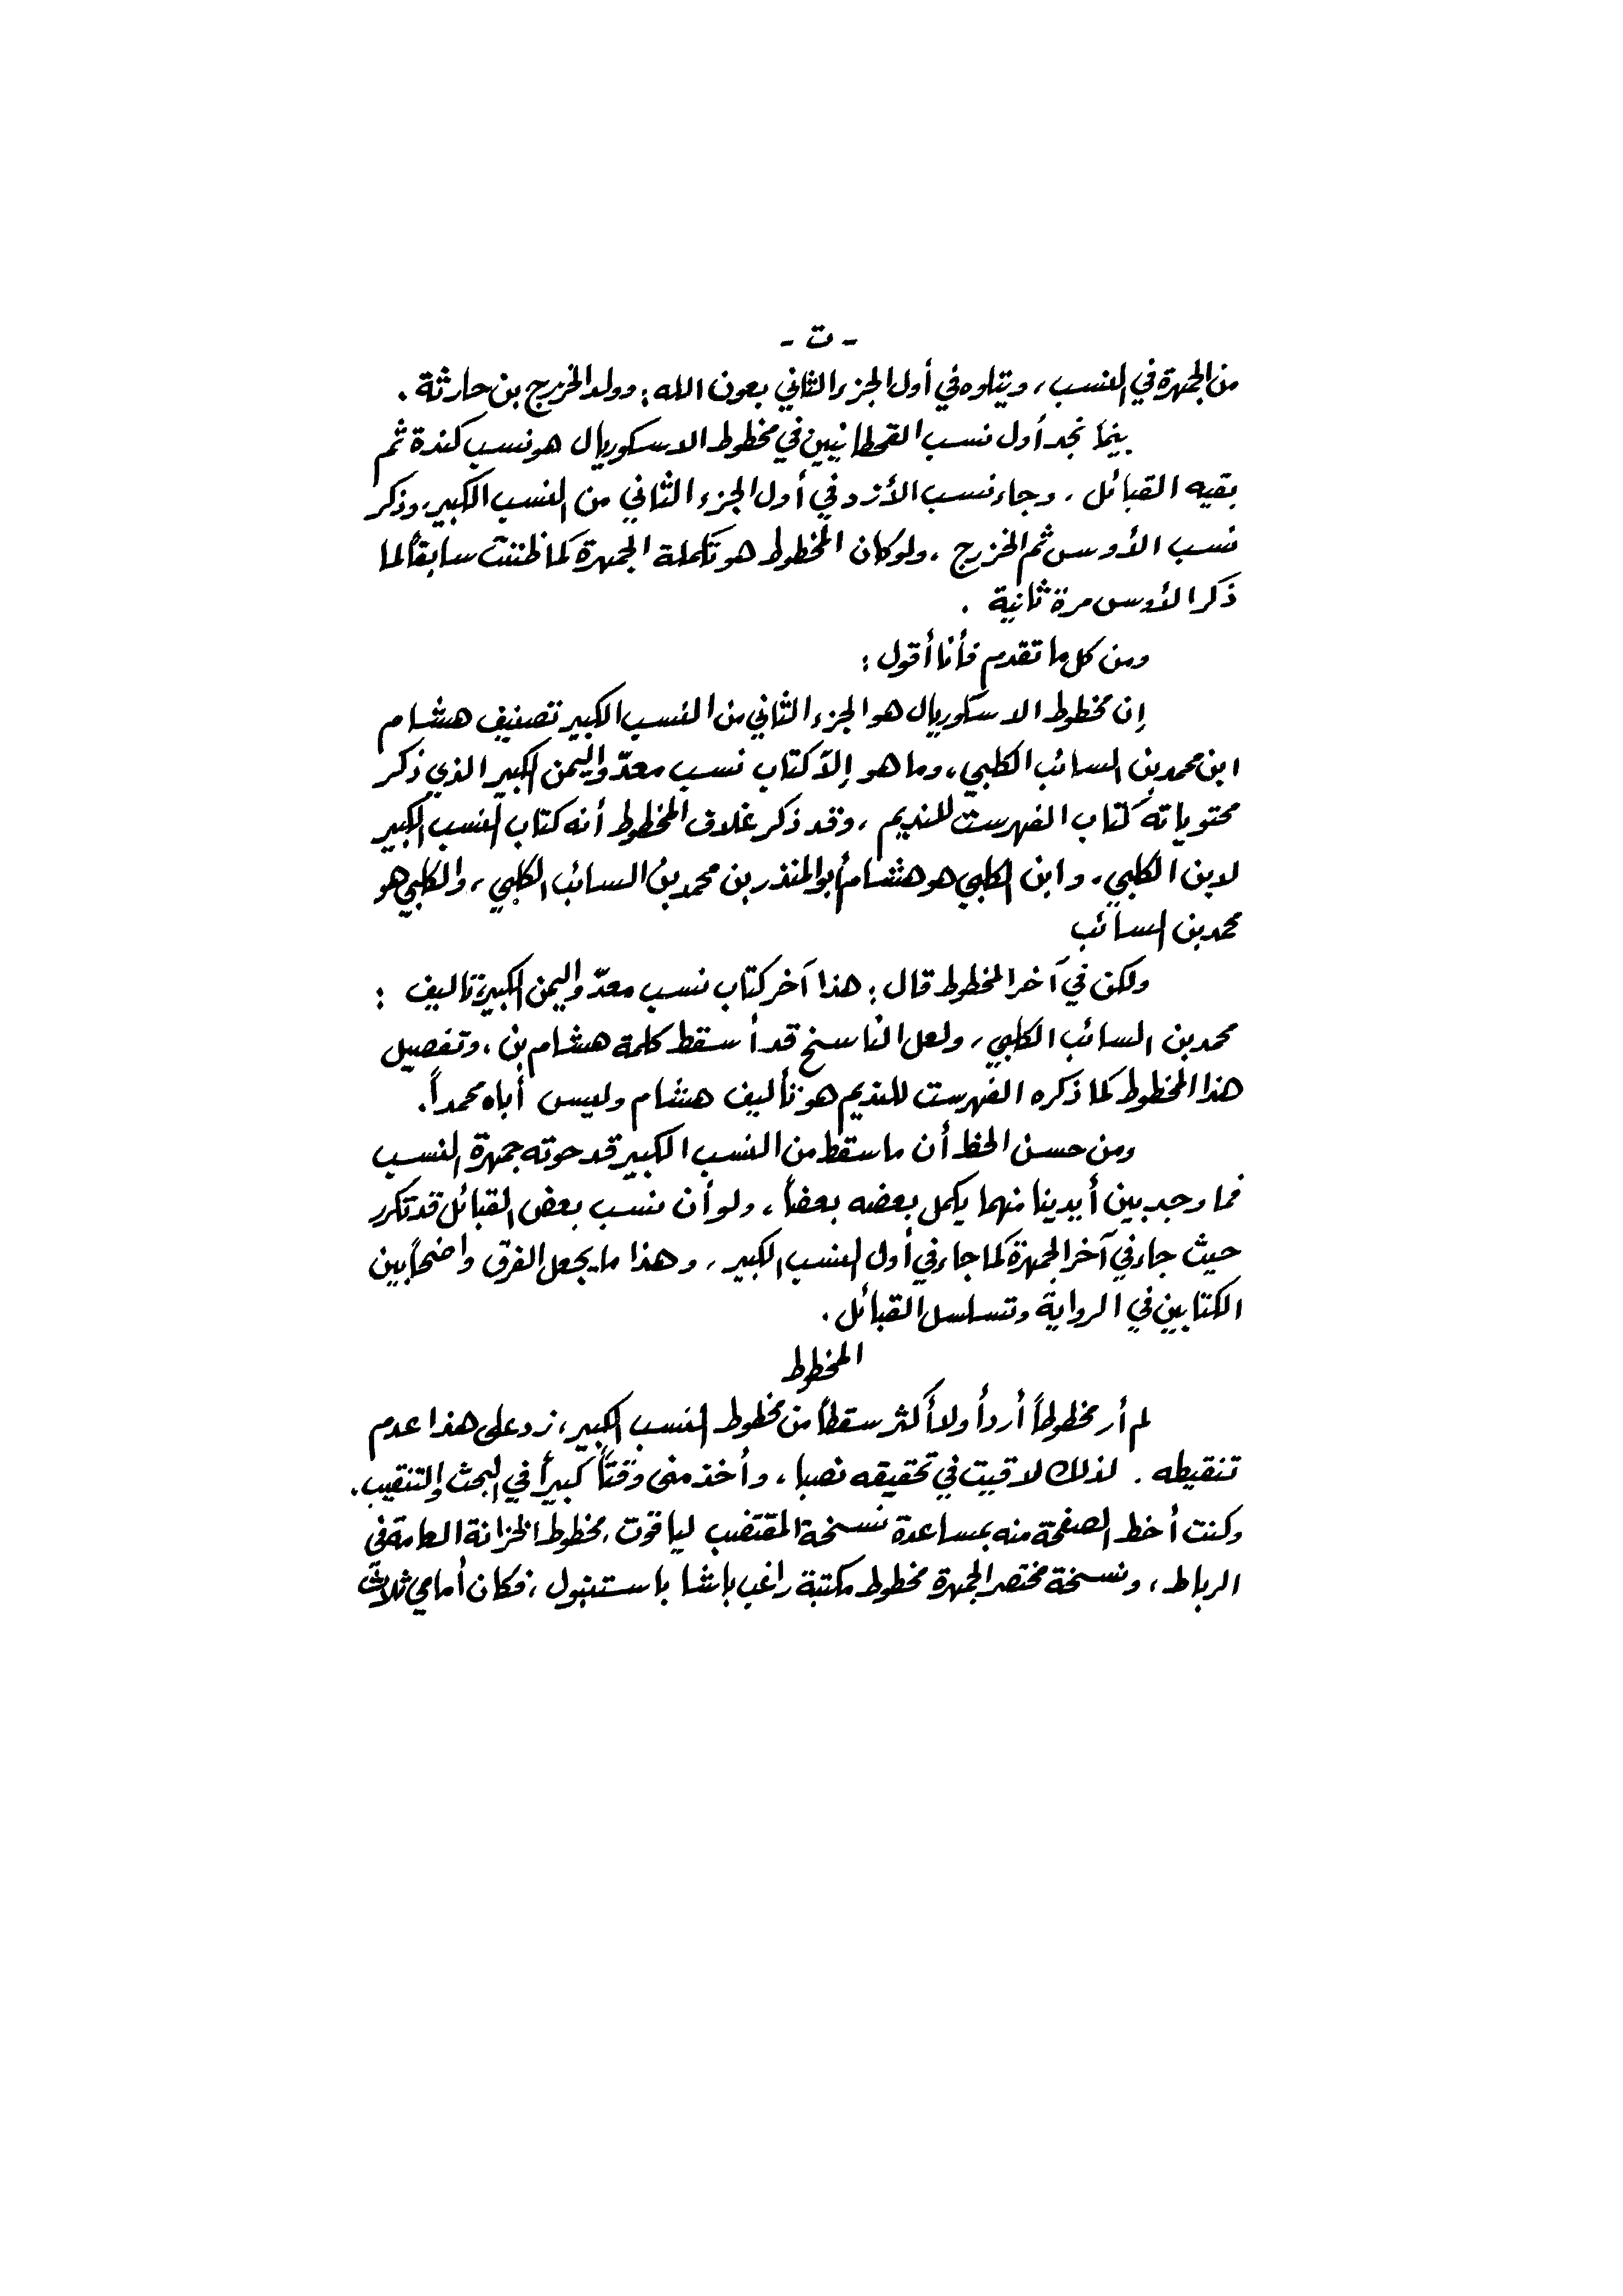 - ت -
من الجمهرة في النسب، ويتلوه في أول الجزء الثاني بعون الله: وولد الخزرج بن حارثة.
بينما نجد أول نسب القحطانيين في مخطوط الاسكوريال هو نسب كندة ثم
بقيه القبائل، وجاء نسب الأزد في أول الجزء الثاني من النسب الكبير، وذكر
نسب الأوس ثم الخزرج، ولو كان المخطوط هو تكملة الجمهرة كما ظننت سابقاً لما
ذكر الأوس مرة ثانية.
ومن كل ما تقدم فأنا أقول:
إن مخطوط الاسكوريال هو الجزء الثاني من النسب الكبير تصنيف هشام
ابن محمد بن السائب الكلبي، وما هو إلاّ كتاب نسب معدّ واليمن الكبير الذي ذكر
محتوياته كتاب الفهرست للنديم، وقد ذكر غلاف المخطوط أنه كتاب النسب الكبير
لابن الكلبي، وابن الكلبي هو هشام أبو المنذر بن محمد بن السائب الكلبي، والكلبي هو
محمد بن السائب
ولكن في آخر المخطوط قال: هذا آخر كتاب نسب معدّ واليمن الكبير تاليف:
محمد بن السائب الكلبي، ولعل الناسخ قد أسقط كلمة هشام بن، وتفصيل
هذا المخطوط كما ذكره الفهرست للنديم هو تأليف هشام وليس أباه محمداً.
ومن حسن الحظ أن ما سقط من النسب الكبير قد حوته جمهرة النسب
فما وجد بين أيدينا منهما يكمل بعضه بعضاً، ولو أن نسب بعض القبائل قد تكرر
حيث جاء في آخر الجمهرة كما جاء في أول النسب الكبير، وهذا ما يجعل الفرق واضحاً بين
الكتابين في الرواية وتسلسل القبائل.
المخطوط
لم أر مخطوطاً أردأ ولا أكثر سقطاً من مخطوط النسب الكبير، زد على هذا عدم
تنقيطه. لذلك لاقيت في تحقيقه نصبا، وأخذ منى وقتاً كبيراً في البحث والتنقيب.
وكنت أخط الصفحة منه بمساعدة نسخة المقتضب لياقوت، مخطوط الخزانة العامة في
الرباط، ونسخة مختصر الجمهرة مخطوط مكتبة راغب باشا باستنبول، فكان أمامي ثلاث